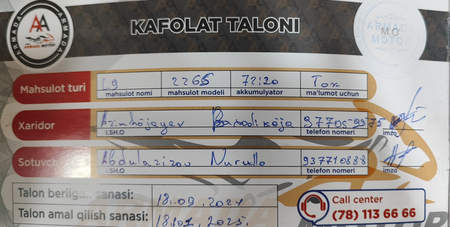 KAFOLAT TALONI
ARMADA
ARMADA MOTOR
MO
Mahsulot turi 2265 72:20 Tok
mahsulot nomi mahsulot modeli akkumulyator ma'lumot uchun
Xaridor Azimhojayev
I.SH.O telefon nomeri imzo
Sotuvchi Abdulazizov Nurullo 937710888
I.SH.O telefon nomeri imzo
Talon berilgan sanasi: 18.09.2024
Talon amal qilish sanasi: 18.01.2025.
Call center
(78) 113 66 66